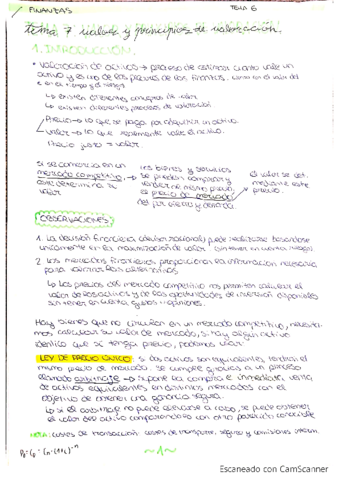 FINANZAS
TEMA 6
tema 7 valor y principios de valoración.
1. INTRODUCCIÓN.
• VALORACIÓN DE ACTIVO → proceso de estimar cuanto vale un
activo y es uno de los pilares de las finanzas.
en el riesgo
↳ existen diferentes conceptos de valor
↳ existen diferentes procesos de valoración
Precio → lo que se paga por adquirir un activo
valor → lo que realmente vale el activo.
Precio justo = valor
si se comercia en un
mercado competitivo →
los bienes y servicios
se pueden comprar y
vender al mismo precio,
es precio de mercado
del por oferta y demanda.
el valor se det.
mediante este
precio.
OBSERVACIONES
1. La decisión financiera puede realizarse basandose
unicamente en la maximización de valor
2. Los mercados financieros proporcionan la información necesaria
para valorar las alternativas
↳ Los precios del mercado competitivo nos permiten calcular el
valor de los activos y de las oportunidades de inversión disponibles
sin tener en cuenta gustos - opiniones.
Hay bienes que no circulan en un mercado competitivo, necesita-
mos calcular su valor de mercado, si hay algún activo
identico que si tenga precio, podemos usar:
LEY DE PRECIO ÚNICO: si dos activos son equivalentes tendrán el
mismo precio de mercado, se cumple gracias a un proceso
llamado arbitraje → supone la compra e inmediata venta
de activos equivalentes en distintos mercados con el
objetivo de obtener una ganancia segura.
↳ si el arbitraje no puede llevarse a cabo, se puede obtener
el valor del activo comparandolo con otro parecido
NOTA: costes de transacción: costes de transporte, seguro y comisiones
~1~
Escaneado con CamScanner